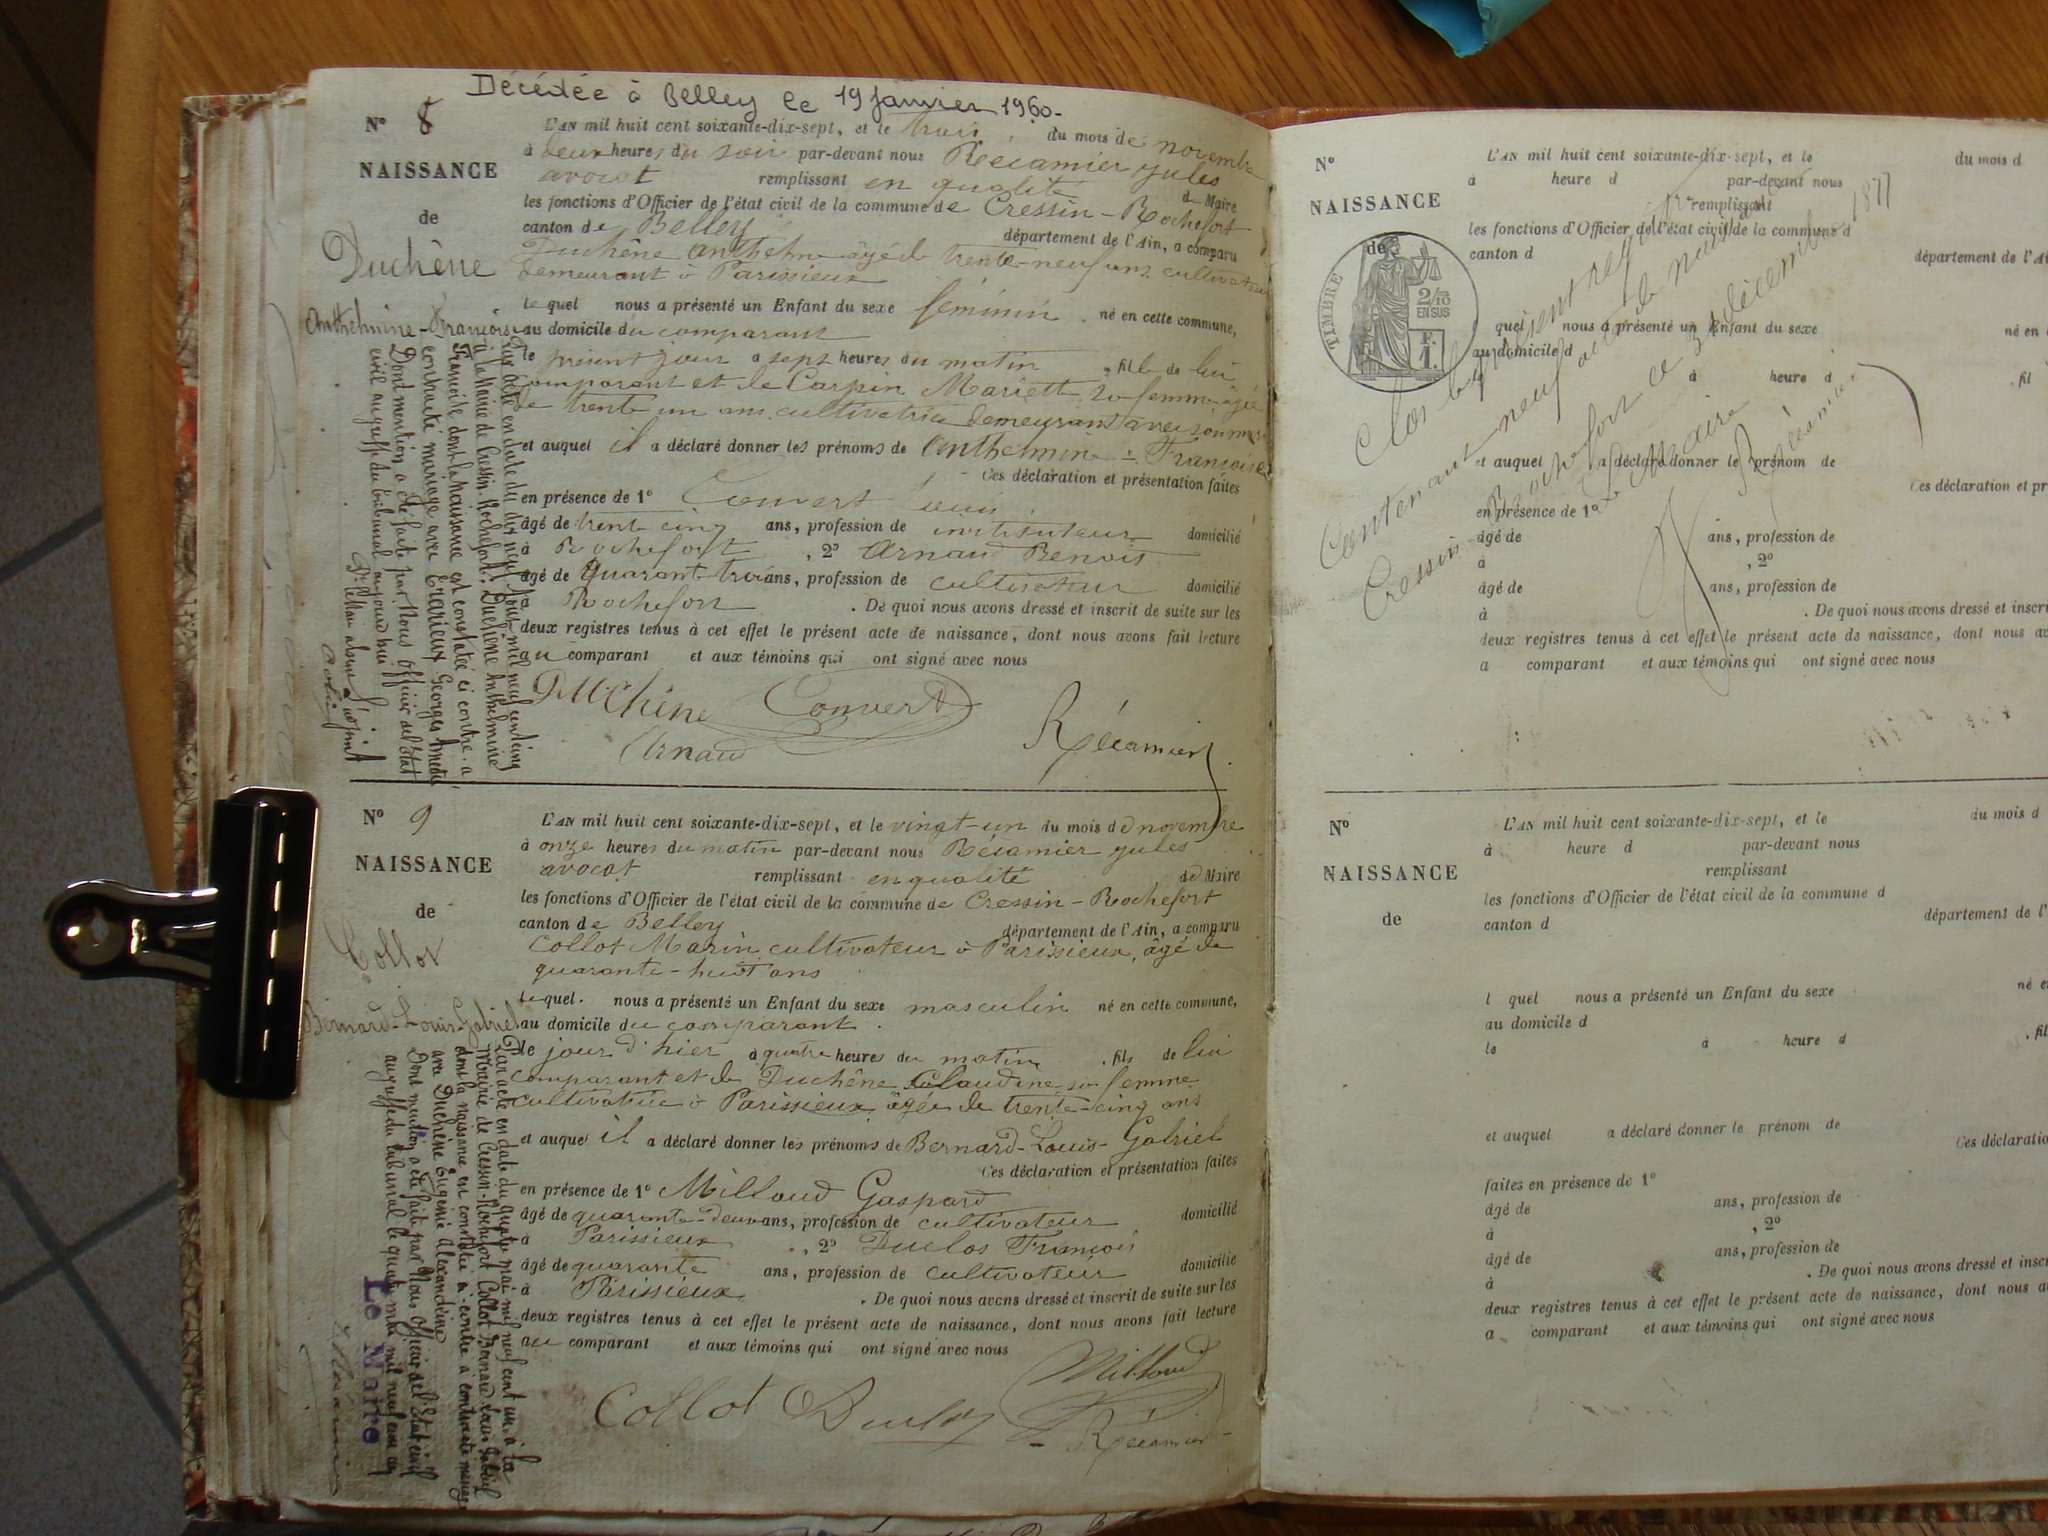 Décédée à Belley le 19 janvier 1960.
N° 8
NAISSANCE
de
Duchêne
Anthelmine-Françoise
L'AN mil huit cent soixante-dix-sept, et le trois du mois de novembre
à deux heures du soir par-devant nous Récamier Jules
avocat remplissant en qualité de Maire
les fonctions d'Officier de l'état civil de la commune de Cressin-Rochefort
canton de Belley département de l'Ain, a comparu
Duchêne Anthelme âgé de trente-neuf ans cultivateur
demeurant à Parissieux
lequel nous a présenté un Enfant du sexe féminin né en cette commune,
au domicile du comparant
le présent jour à sept heures du matin , fille de lui
comparant et de Carpin Mariette sa femme âgée
de trente un ans cultivatrice demeurant avec son mari
et auquel il a déclaré donner les prénoms de Anthelmine-Françoise
Ces déclaration et présentation faites
en présence de 1° Convert Louis
âgé de trente cinq ans, profession de instituteur domicilié
à Rochefort , 2° Arnaud Benoit
âgé de quarante-trois ans, profession de cultivateur domicilié
à Rochefort . De quoi nous avons dressé et inscrit de suite sur les
deux registres tenus à cet effet le présent acte de naissance, dont nous avons fait lecture
au comparant et aux témoins qui ont signé avec nous
Duchêne Convert
Arnaud Récamier
Par acte en date du dix neuf août mil neuf cent cinq
à la Mairie de Cressin-Rochefort, Duchêne Anthelmine
Françoise dont la naissance est constatée ci contre a
contracté mariage avec Erarieux Georges Amédée
Dont mention a été faite par Nous officier de l'état
civil au greffe du tribunal aujourd'hui
N° 9
NAISSANCE
de
Collot
Bernard-Louis-Gabriel
L'AN mil huit cent soixante-dix-sept, et le vingt-un du mois de novembre
à onze heures du matin par-devant nous Récamier Jules
avocat remplissant en qualité de Maire
les fonctions d'Officier de l'état civil de la commune de Cressin-Rochefort
canton de Belley département de l'Ain, a comparu
Collot Marin cultivateur à Parissieux, âgé de
quarante-huit ans
lequel nous a présenté un Enfant du sexe masculin né en cette commune,
au domicile du comparant
le jour d'hier à quatre heures du matin , fils de lui
comparant et de Duchêne Claudine sa femme
cultivatrice à Parissieux âgée de trente-cinq ans
et auquel il a déclaré donner les prénoms de Bernard-Louis-Gabriel
Ces déclaration et présentation faites
en présence de 1° Milloud Gaspard
âgé de quarante-deux ans, profession de cultivateur domicilié
à Parissieux , 2° Duclos François
âgé de quarante ans, profession de cultivateur domicilié
à Parissieux . De quoi nous avons dressé et inscrit de suite sur les
deux registres tenus à cet effet le présent acte de naissance, dont nous avons fait lecture
au comparant et aux témoins qui ont signé avec nous
Milloud
Collot Duclos Récamier
Par acte en date du quatre mai mil neuf cent un, à la
Mairie de Cressin-Rochefort Collot Bernard Louis Gabriel
dont la naissance est constatée ci-contre a contracté mariage
avec Duchêne Eugénie Alexandrine
Dont mention a été faite par Nous officier de l'état civil
au greffe du tribunal le quatre mai mil neuf cent un
Le Maire
N°
NAISSANCE
de
TIMBRE
2/10
EN SUS
F.
1.
L'AN mil huit cent soixante-dix-sept, et le du mois d
à heure d par-devant nous
remplissant
les fonctions d'Officier de l'état civil de la commune d
canton d département de l'Ai
quel nous a présenté un Enfant du sexe né en
au domicile d
à heure d , fil
et auquel a déclaré donner le prénom de
Ces déclaration et pr
en présence de 1°
âgé de ans, profession de
à , 2°
âgé de ans, profession de
à . De quoi nous avons dressé et inscri
deux registres tenus à cet effet le présent acte de naissance, dont nous av
a comparant et aux témoins qui ont signé avec nous
Clos le présent registre
Contenant neuf actes de naissance
Cressin-Rochefort ce 31 décembre 1877
Le Maire
Récamier
N°
NAISSANCE
de
L'AN mil huit cent soixante-dix-sept, et le du mois d
à heure d par-devant nous
remplissant
les fonctions d'Officier de l'état civil de la commune d
canton d département de l'
l quel nous a présenté un Enfant du sexe né e
au domicile d
le à heure d , fil
et auquel a déclaré donner le prénom de
Ces déclaratio
faites en présence de 1°
âgé de ans, profession de
à , 2°
âgé de ans, profession de
à . De quoi nous avons dressé et inscr
deux registres tenus à cet effet le présent acte de naissance, dont nous a
a comparant et aux témoins qui ont signé avec nous